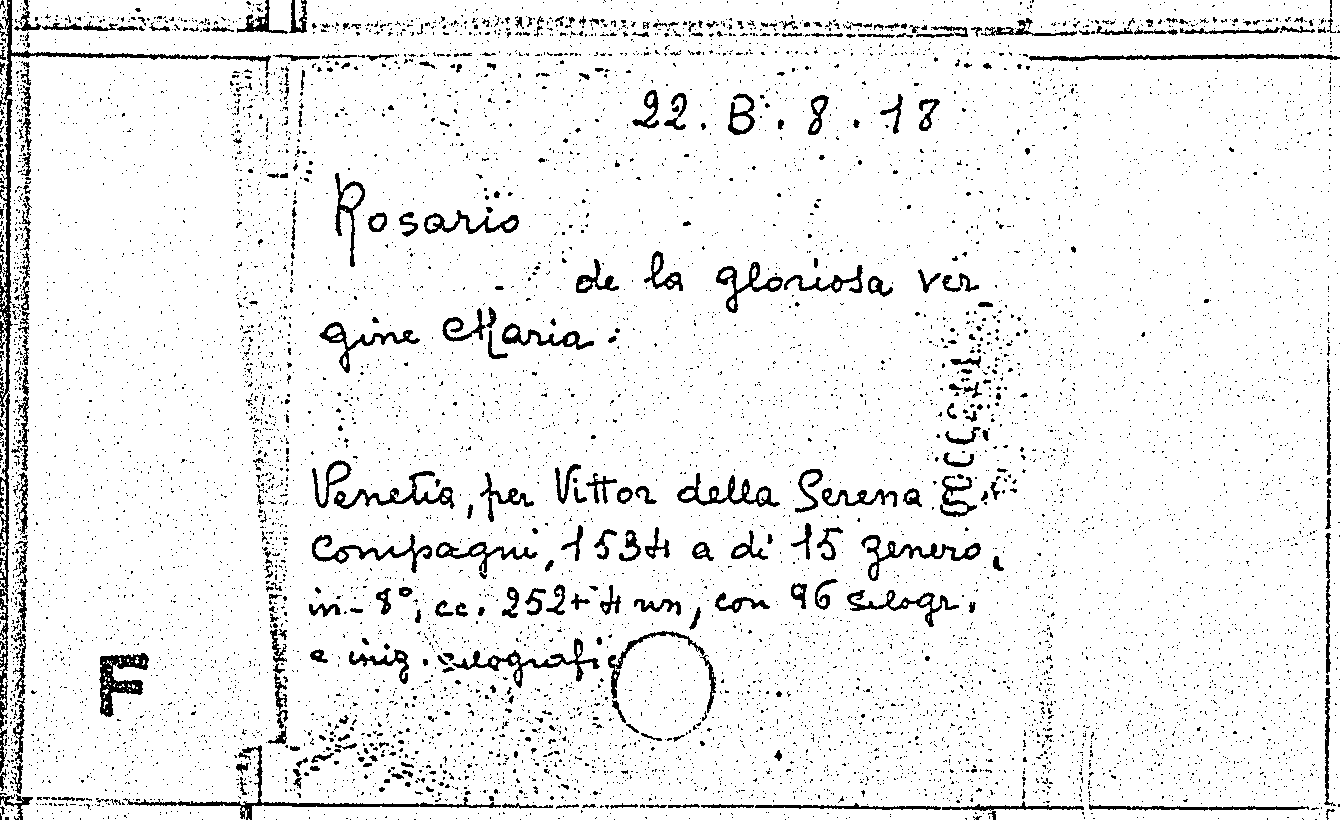 22. B. 8. 18
Rosario
de la gloriosa ver
gine Maria.
Venetia, per Vittor della Serena
compagni, 1534 a di 15 zenero,
in-8°, cc. 252+4 nn, con 96 silogr.
e iniz. silografic
F